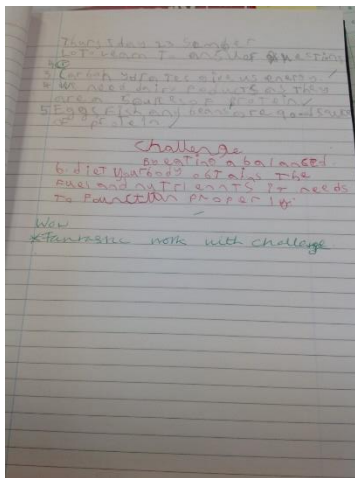 Thursday 23 
LO: Learn to answer questions
3. Carbohydrates give us energy
4 We need dairy products as they
are a source of protein
5. Eggs fish and beans are good
of protein
Challenge
By eating a balanced
6. diet your body obtains the
fuel and nutrients it needs
to function properly.
Wow
*Fantastic work with challenge